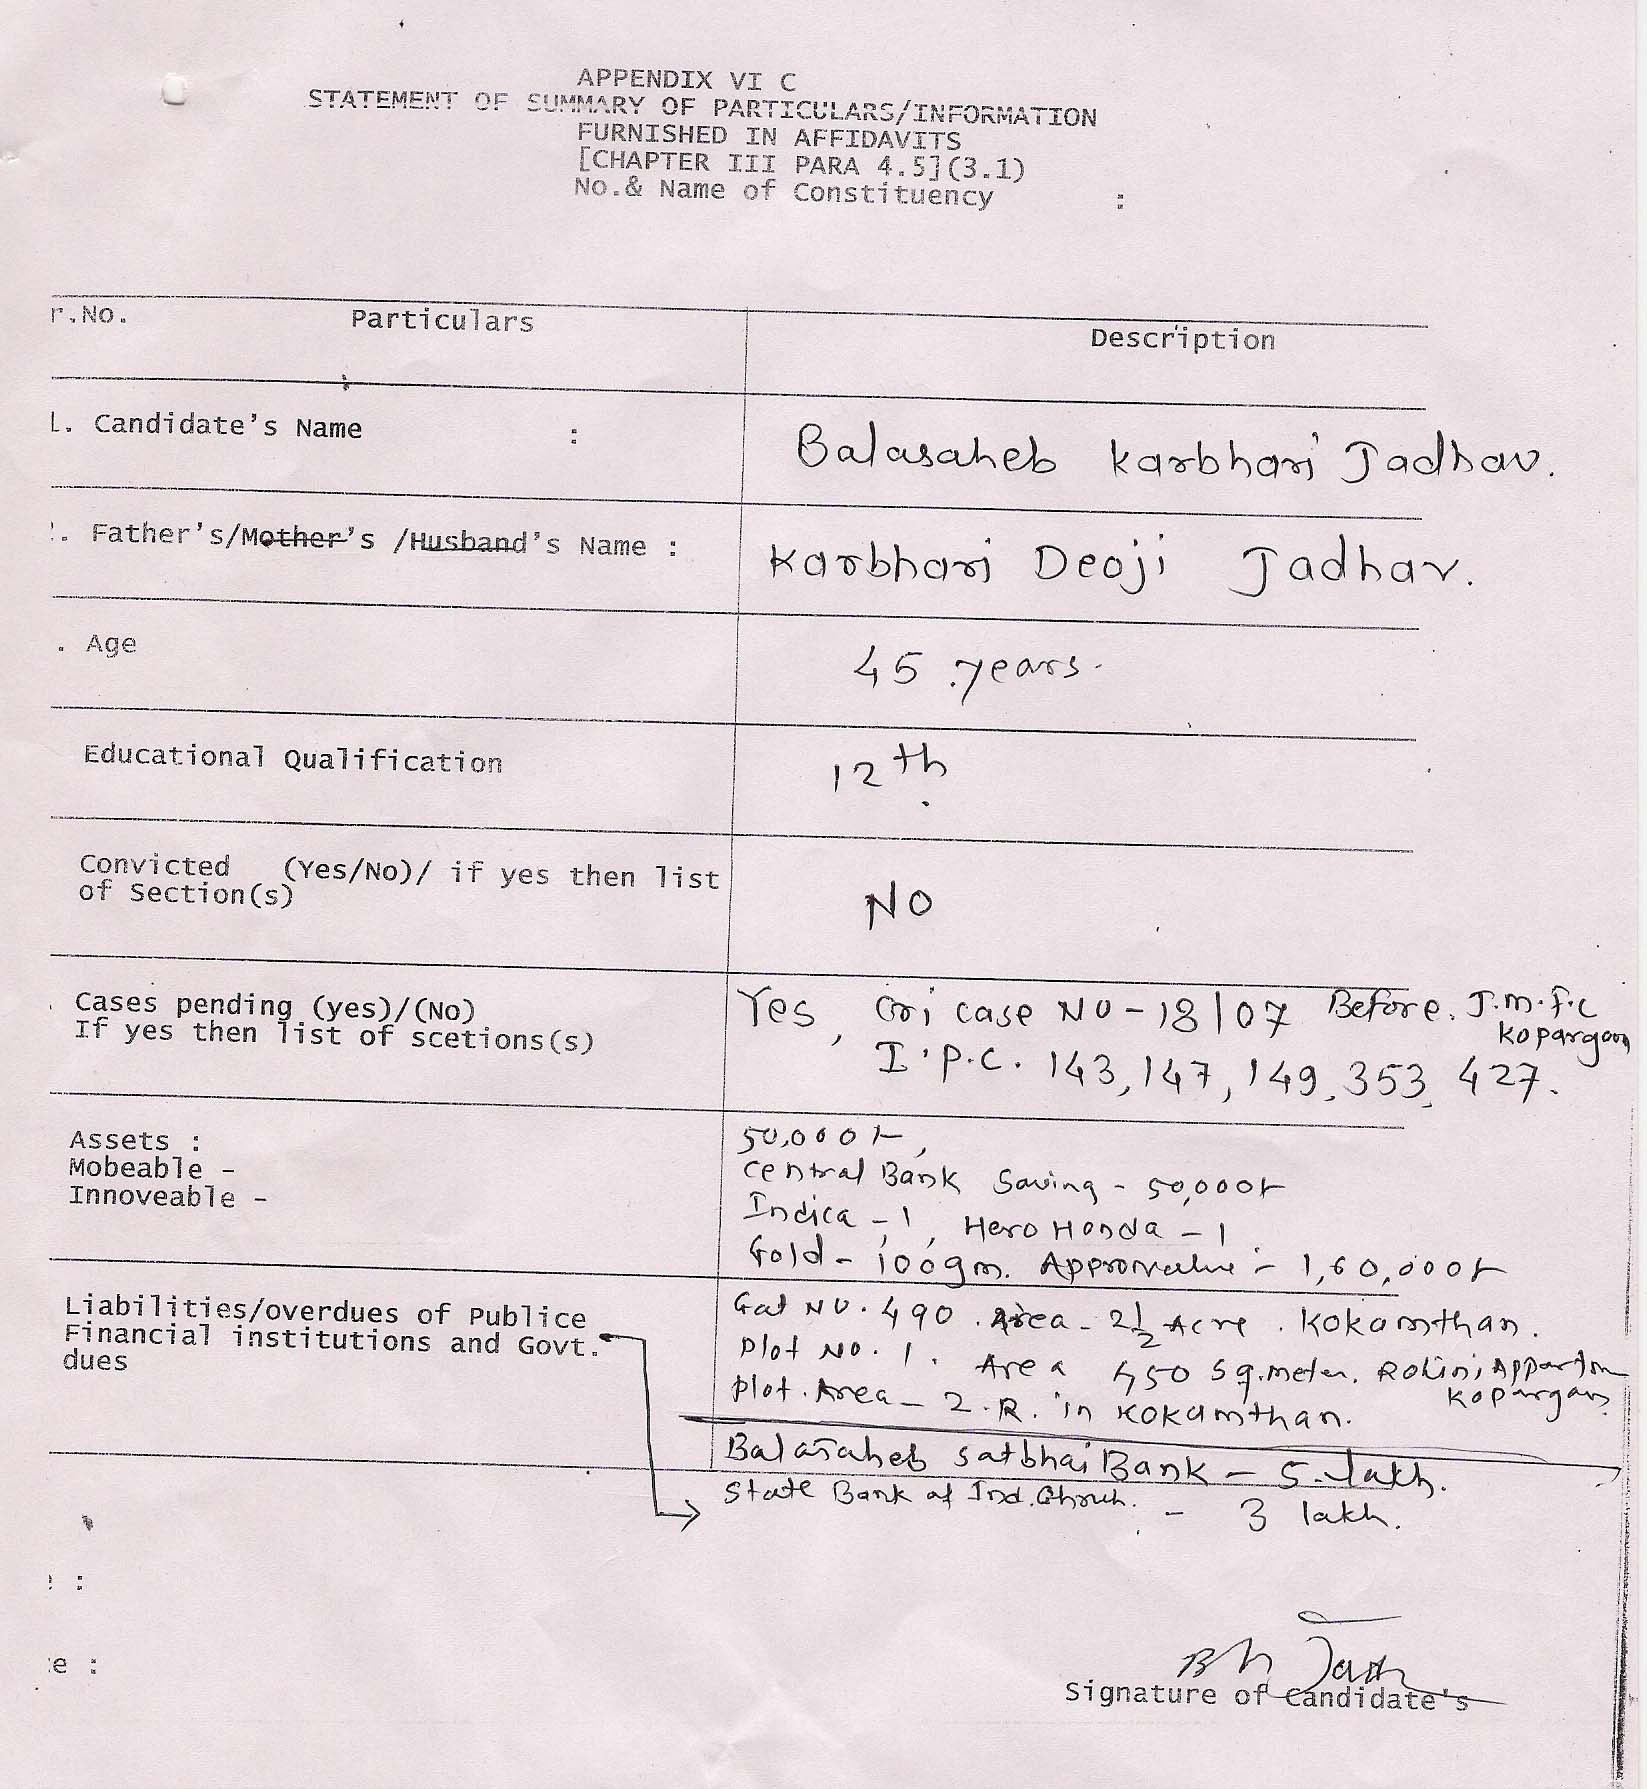 APPENDIX VI C
STATEMENT OF SUMMARY OF PARTICULARS/INFORMATION
FURNISHED IN AFFIDAVITS
[CHAPTER III PARA 4.5](3.1)
No.& Name of Constituency :
r.No. Particulars Description
1. Candidate's Name : Balasaheb Karbhari Jadhav.
. Father's/Mother's /Husband's Name : Karbhari Deoji Jadhav.
. Age 45 years.
Educational Qualification 12th
Convicted (Yes/No)/ if yes then list
of Section(s) NO
Cases pending (yes)/(No) Yes, Cri case NO-18/07 Before. J.M.F.C
Kopargaon
If yes then list of scetions(s) I.P.C. 143,147,149,353,427.
Assets : 50,000/-,
Mobeable - Central Bank Saving - 50,000/-
Innoveable - Indica - 1, Hero Honda - 1
Gold - 100gm. - 1,60,000/-
Liabilities/overdues of Publice Gat NO. 490. Area - 2½ Acre. Kokamthan.
Financial institutions and Govt. Plot NO. 1. Area 450 Sq.meter. Rohini
Kopargaon
dues Plot. Area - 2.R. in Kokamthan.
Balasaheb Satbhai Bank - 5 lakh.
State Bank of Ind. - 3 lakh.
e :
e :
Signature of Candidate's